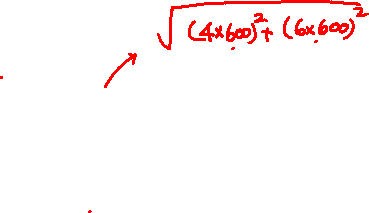 √((4×600)² + (6×600)²)